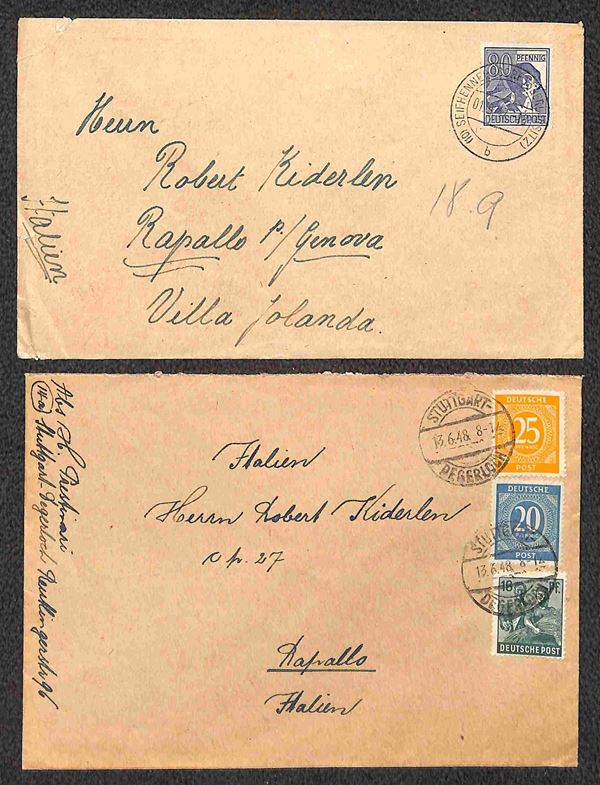 80 PFENNIG
DEUTSCHE POST
b
Herrn
Robert Kiderlen
Rapallo p/Genova
Villa Jolanda.
Italien
18.9
Abs H.
(14a) Stuttgart-Degerloch
STUTTGART-
13.6.48. 8-12
DEGERLOCH
DEUTSCHE
25
PFENNIG
POST
Italien
Herrn Robert Kiderlen
cp. 27
Rapallo
Italien
DEUTSCHE
20
POST
13.6.48. 8-12
DEGERLOCH
16 Pf.
DEUTSCHE POST